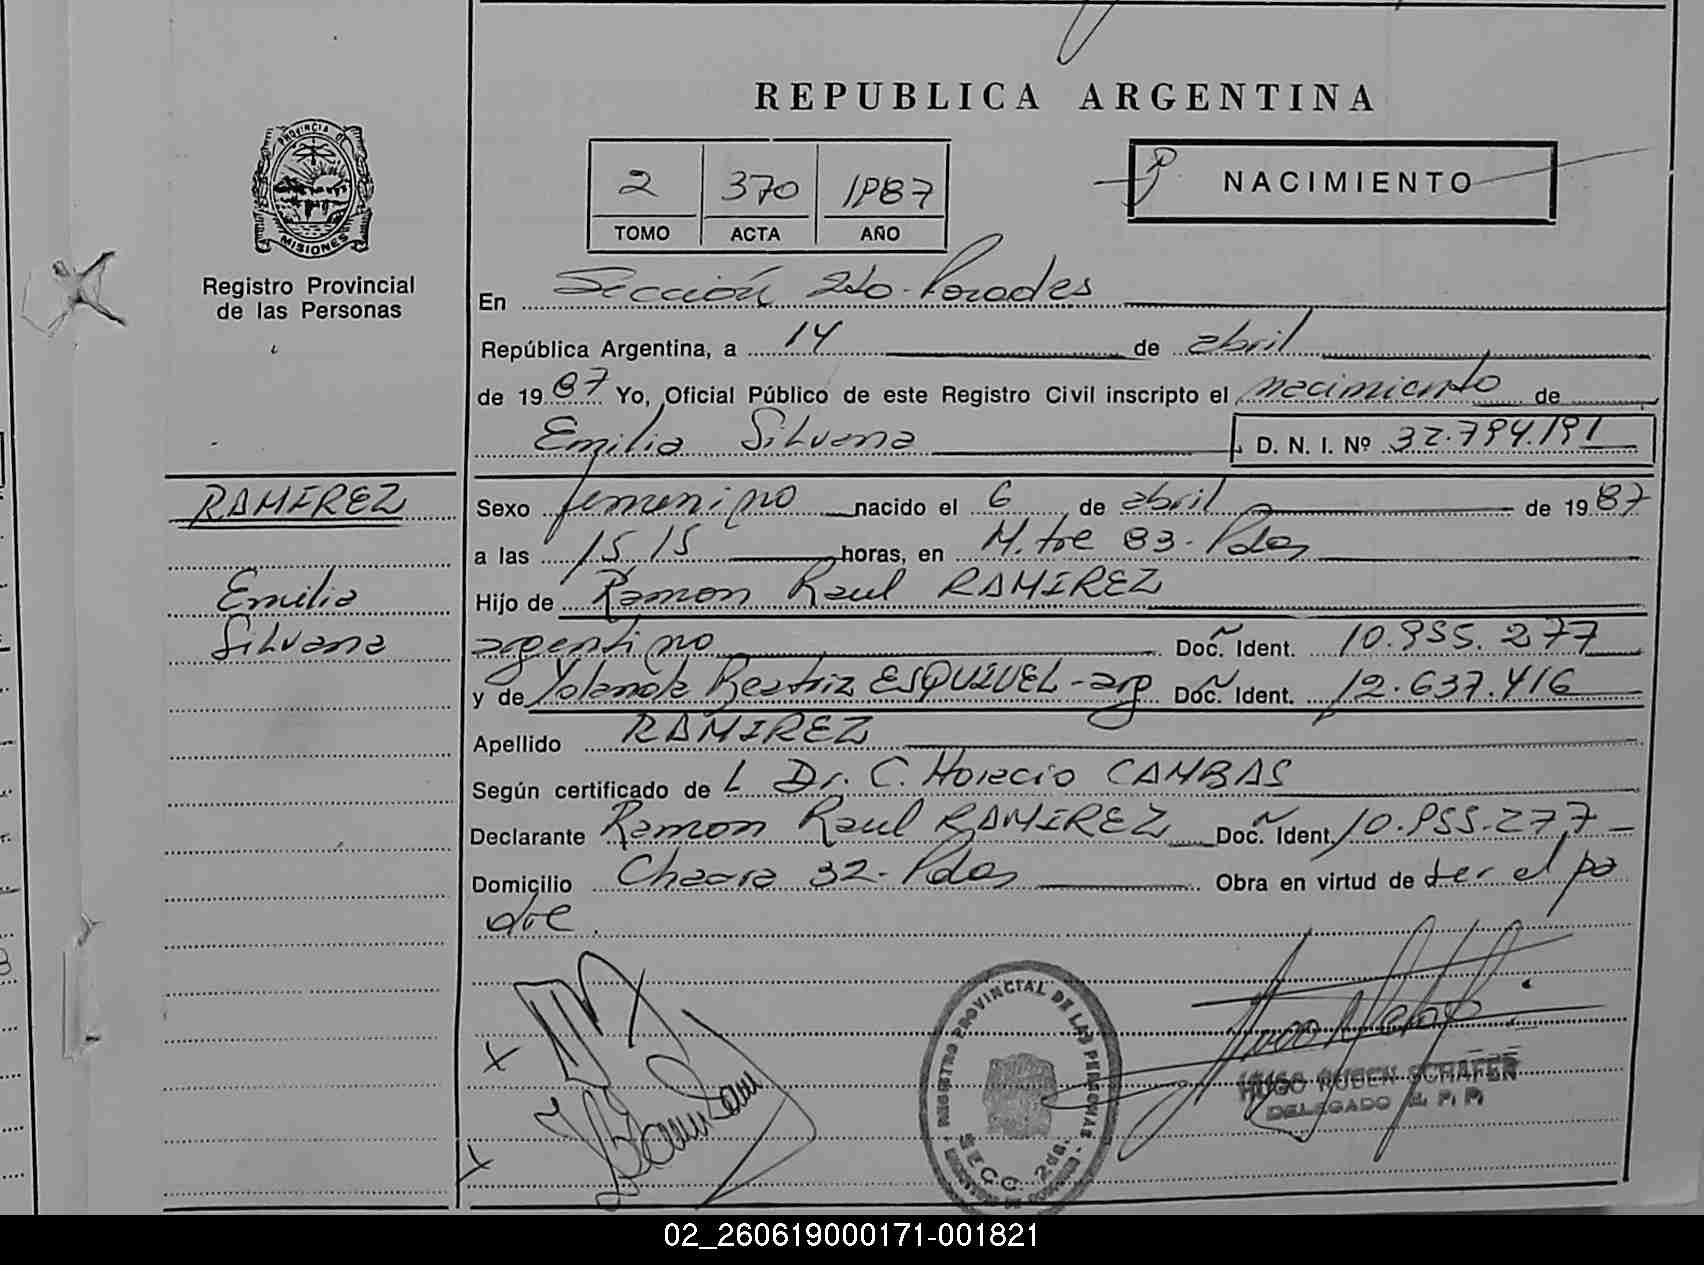 REPUBLICA ARGENTINA
PROVINCIA DE
MISIONES
Registro Provincial
de las Personas
2 370 1987
TOMO ACTA AÑO
NACIMIENTO
En Sección 2do. Posadas
República Argentina, a 14 de abril
de 1987 Yo, Oficial Público de este Registro Civil inscripto el nacimiento de
Emilia Silvana D. N. I. Nº 32.794.191
RAMIREZ
Emilia
Silvana
Sexo femenino nacido el 6 de abril de 1987
a las 15 15 horas, en M. tre 83- Pdas
Hijo de Ramon Raul RAMIREZ
argentino Doc. Ident. 10.955.277
y de Yolanda Beatriz ESQUIVEL - arg Doc. Ident. 12.637.416
Apellido RAMIREZ
Según certificado de L Dr. C. Horacio CAMBAS
Declarante Ramon Raul RAMIREZ Doc. Ident. 10.955.277
Domicilio Chacra 32- Pdas Obra en virtud de ser el pa
dre.
REGISTRO PROVINCIAL DE LAS PERSONAS
SECC. 2da.
HUGO RUBEN SCHAFER
DELEGADO R. P. P.
02_260619000171-001821